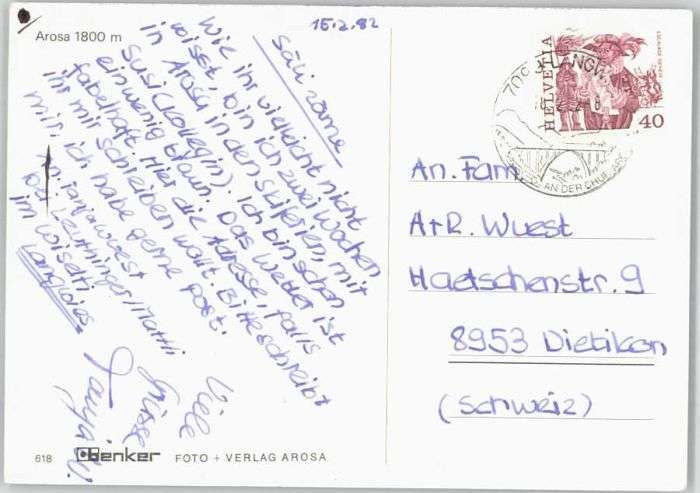 Arosa 1800 m
15.2.82
Sali zäme
Wie ihr vielleicht nicht
wisst, bin ich zwei Wochen
in Arosa in den Skiferien, mit
Susi (Kollegin). Ich bin schon
ein wenig braun. Das Wetter ist
fabelhaft. Hier die Adresse, falls
ihr mir schreiben wollt. Bitte schreibt
mir, ich habe gerne Post.
An: Tanja Wüest
bei Leutninger/Mattli
im Wisetli
Langwies
Viele
Grüsse
Tanja W.
618 Benker FOTO + VERLAG AROSA
HELVETIA
40
LANGWIES
AN DER CHUR-
An. Fam.
A+R. Wuest
Haetschenstr. 9
8953 Dietikon
(Schweiz)